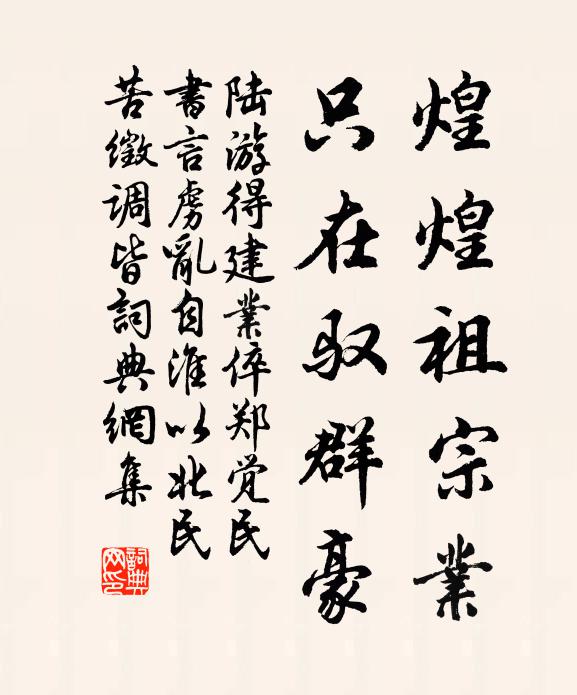 煌煌祖宗業
只在驭群豪
陆游得建業倅郑觉民
書言虏亂自淮以北民
苦徵调皆詞典網集
詞典网印